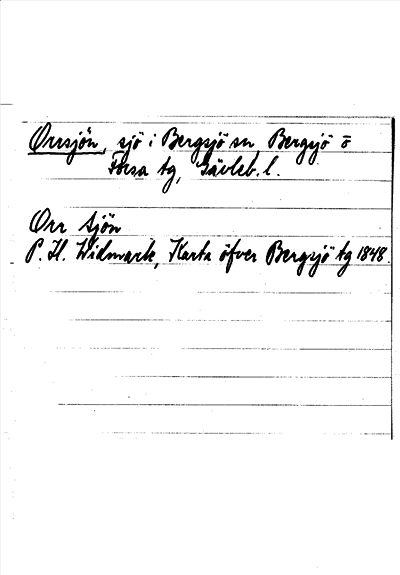 Orrsjön, sjö i Bergsjö sn, Bergsjö o
Forsa tg, Gävleb. l.
Orr Sjön
P. H. Widmark, Karta öfver Bergsjö tg 1848.